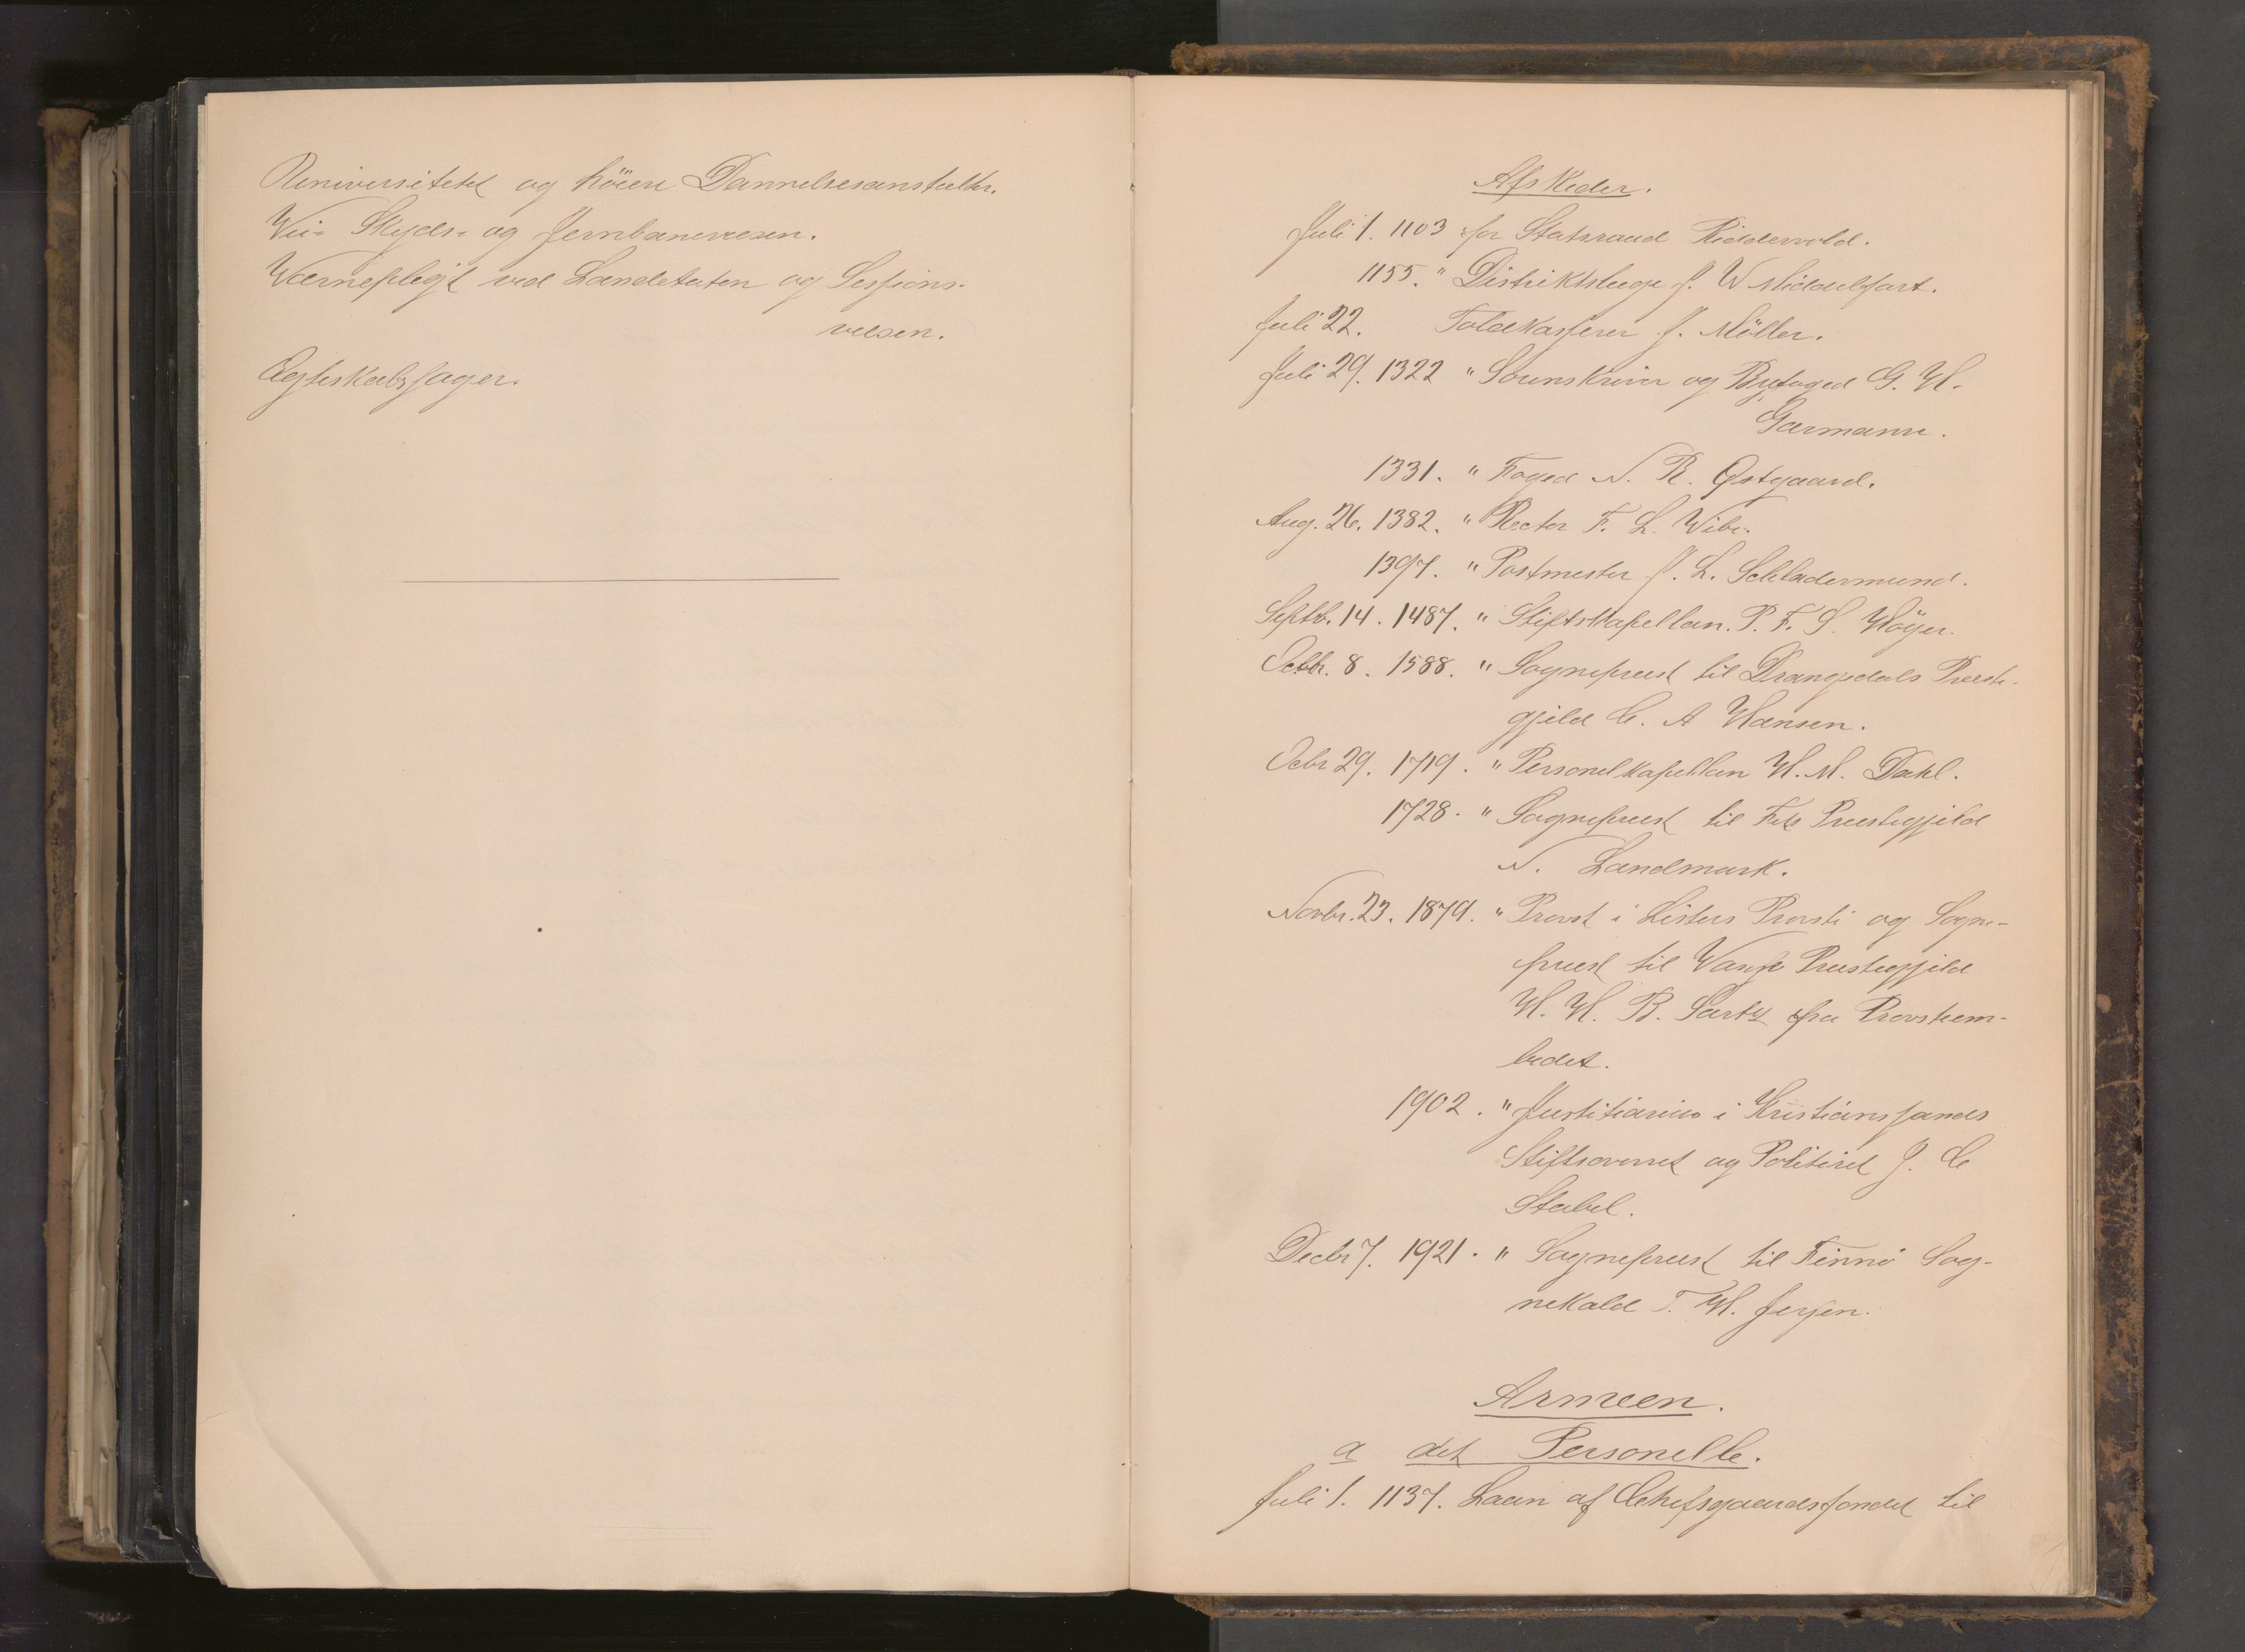 Universitetet og höiere Dannelsesanstalter.
Vei- Skyds- og Jernbanevæsen.
Værnepligt ved Landetaten og Sessions-
væsen.
Ægteskabssager.
Afskeder.
Juli 1. 1103 for Statsraad Riddervold.
1155. " Distriktslæge J. W Middelfart.
Juli 22. Toldkasserer J. Möller.
Juli 29. 1322 " Sorenskriver og Byfoged G. H.
Garmann.
1331. " Foged N. R. Østgaard.
Aug. 26. 1382. " Rector F. L. Vibe.
1397. " Postmester J. L. Schladermund.
Septb. 14. 1487. " Stiftskapellan. P. F. S. Höyer.
Octbr. 8. 1588. " Sognepræst til Drangedals Præste-
gjeld C. A Hansen.
Octbr 29. 1719. " Personelkapellan H. M. Dahl.
1728. " Sognepræst til Fets Præstegjeld
N. Landmark.
Novbr. 23. 1879. " Provst i Listers Provsti og Sogne-
præst til Vanse Præstegjeld
H. H. B. Sartz fra Provsteem-
bedet.
1902. " Justitiarius i Kristianssands
Stiftsoverret og Politiret J. C
Stabel.
Decbr 7. 1921. " Sognepræst til Finnö Sog-
nekald T. H. Jersen.
Armeen.
a det Personelle.
Juli 1. 1137. Laan af Chefsgaardsfondet til